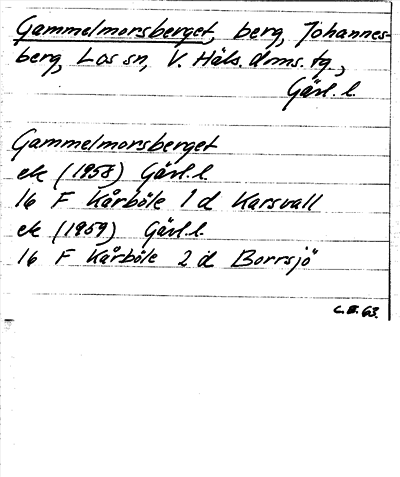 Gammelmorsberget, berg, Johannes-
berg, Los sn, V. Häls. doms. tg,
Gävl. l.
Gammelmorsberget
ek (1958) Gävl. l.
16 F Kårböle 1 d Karsvall
ek (1959) Gävl. l.
16 F Kårböle 2 d Borrsjö
C.B. 63.